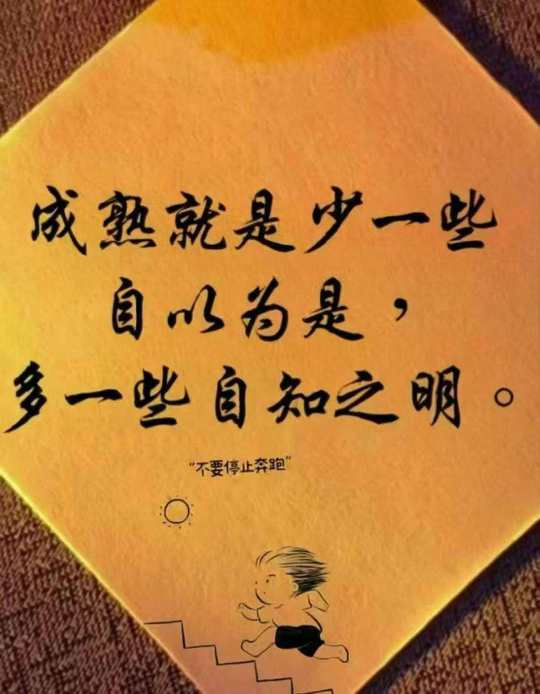 成熟就是少一些
自以为是，
多一些自知之明。
“不要停止奔跑”